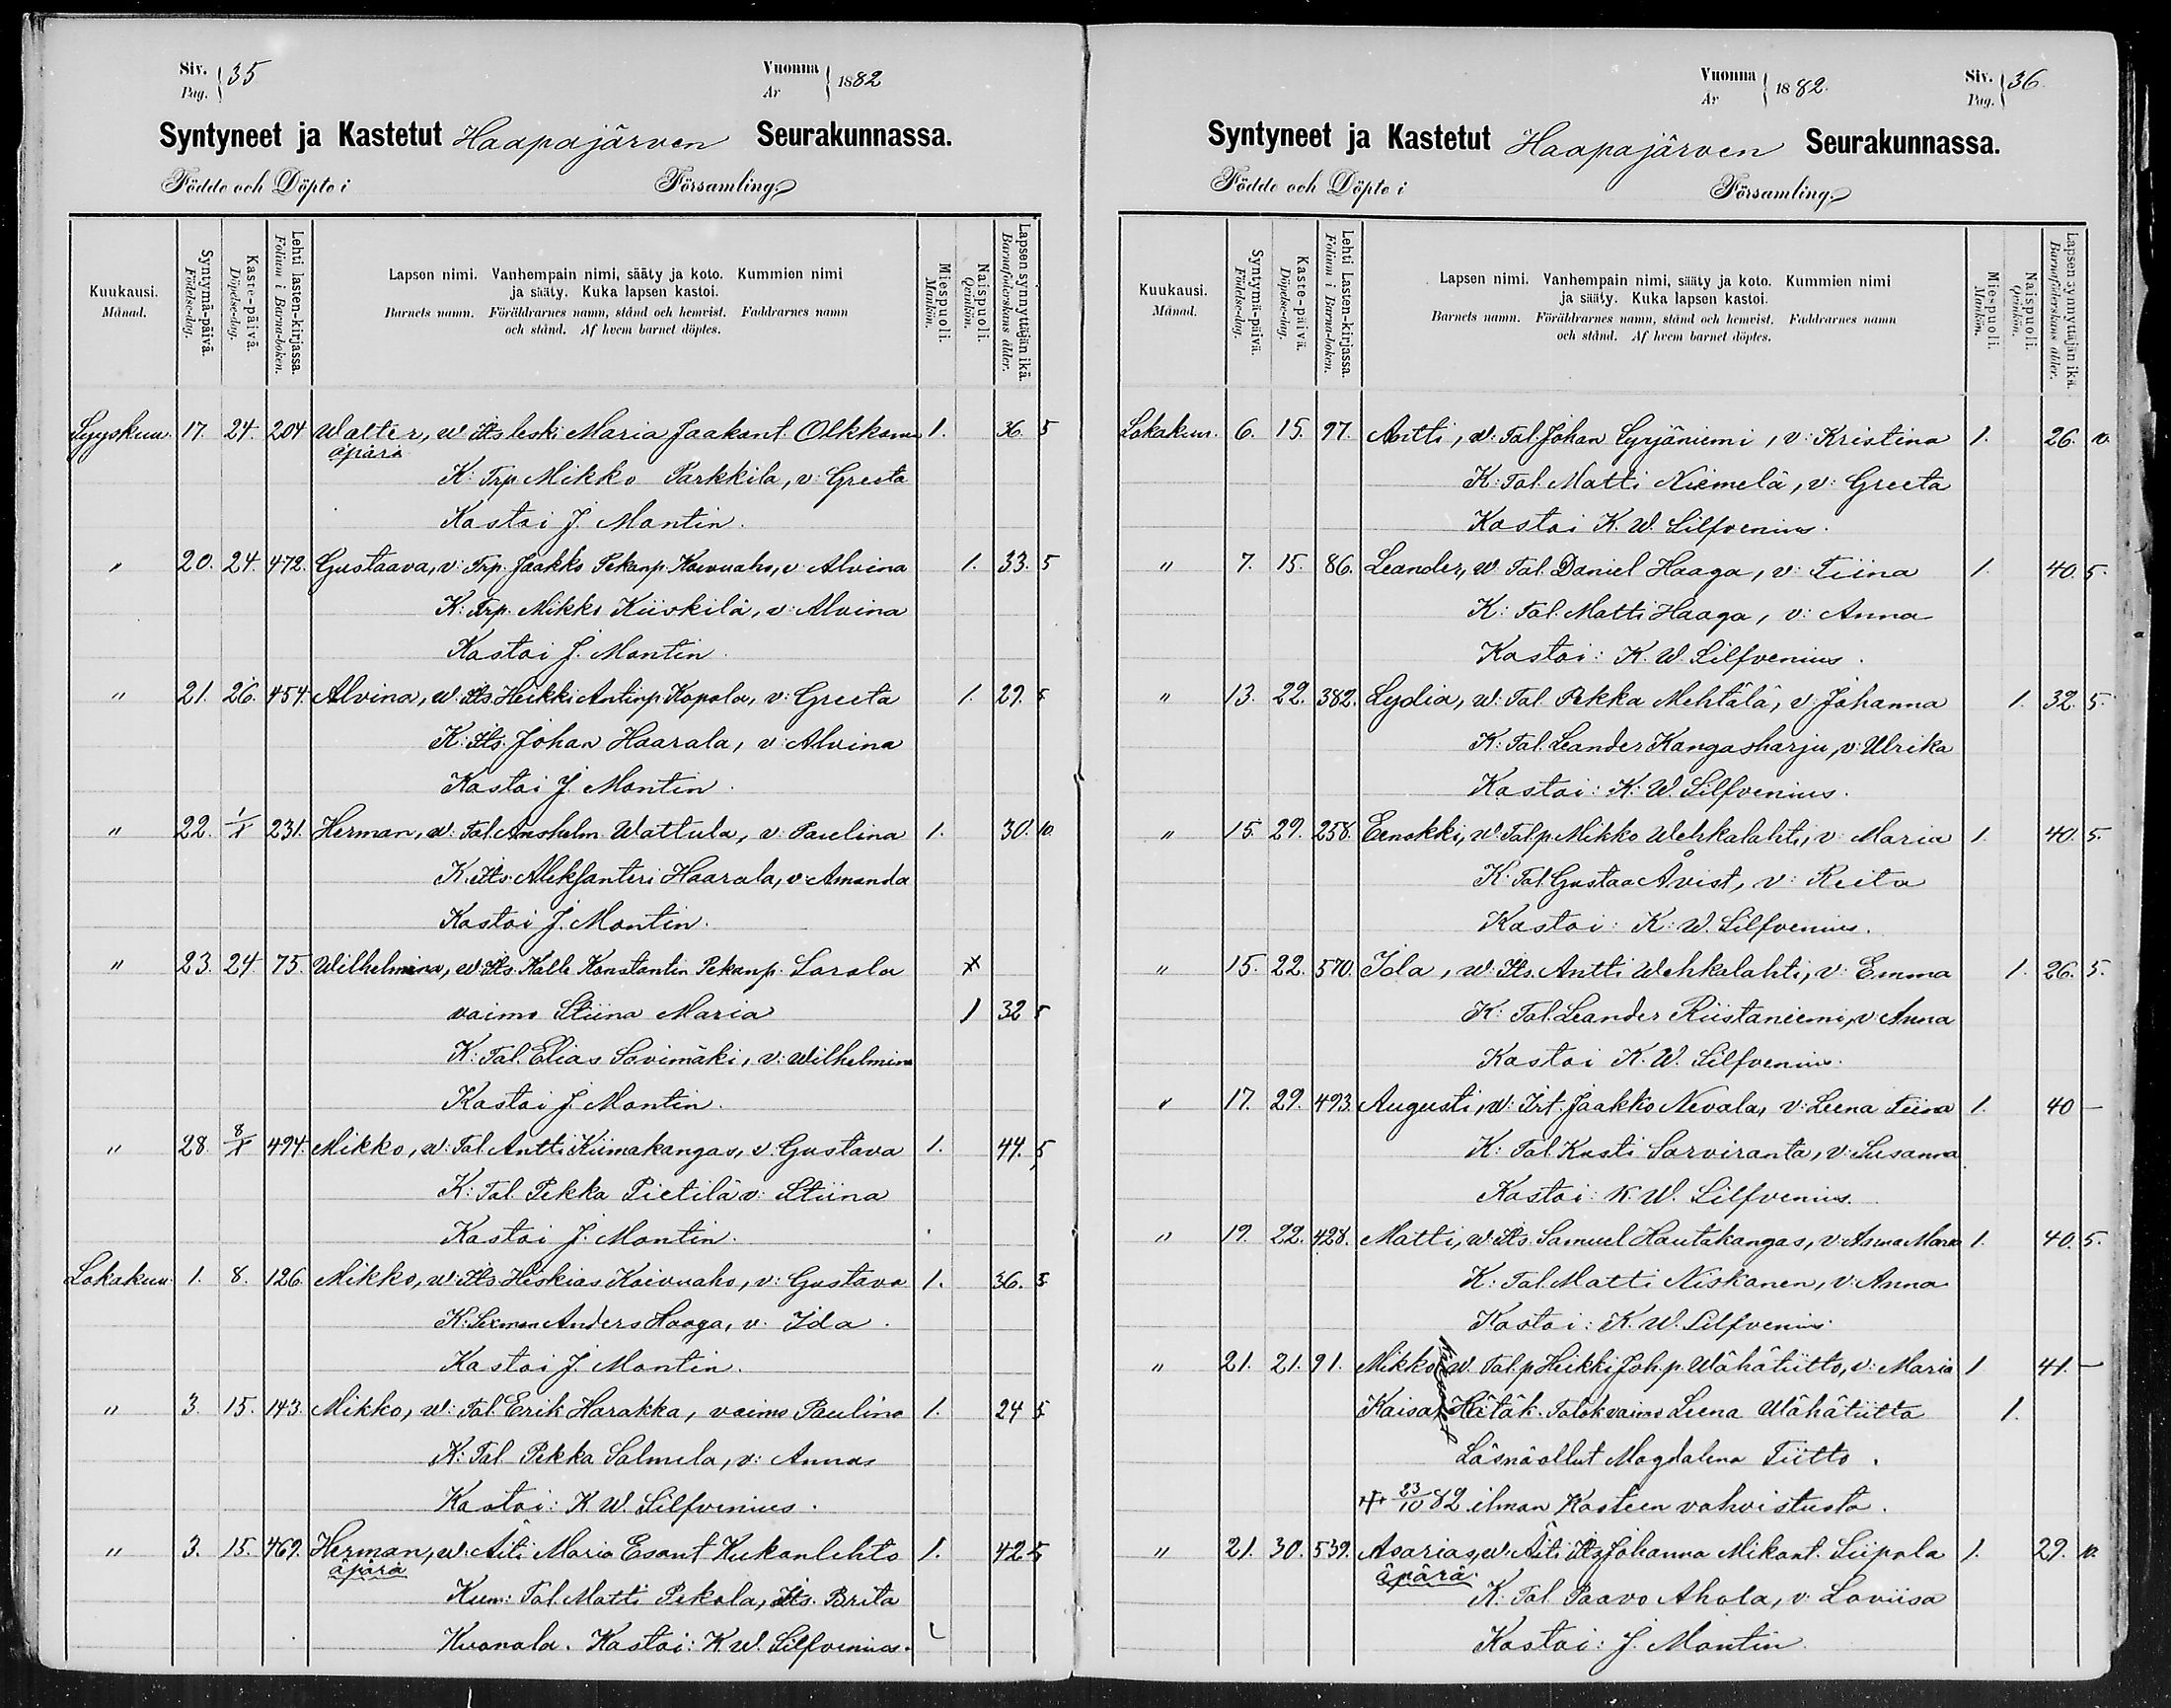 Siv. Pag. 35 Vuonna År 1882
Syntyneet ja Kastetut Haapajärven Seurakunnassa.
Födde och Döpte i Församling.
Kuukausi. Månad.
Syntymä-päivä. Födelse-dag.
Kaste-päivä. Döpelse-dag.
Lehti lasten-kirjassa. Folium i Barna-boken.
Lapsen nimi. Vanhempain nimi, sääty ja koto. Kummien nimi
ja sääty. Kuka lapsen kastoi.
Barnets namn. Föräldrarnes namn, stånd och hemvist. Faddrarnes namn
och stånd. Af hvem barnet döptes.
Miespuoli. Mankön.
Naispuoli. Qvinkön.
Lapsen synnyttäjän ikä. Barnaföderskans ålder.
Syyskuu. 17. 24. 204 Walter, w. Its leski Maria Jaakont. Olkkonen 1. 36. 5
äpärä
K: Trp. Mikko Parkkila, v: Greeta
Kastoi J. Montin.
" 20. 24. 472. Gustaava, v: Trp. Jaakko Pekanp. Koivuaho, v Alvina 1. 33. 5
K: Trp. Mikko Kiiskilä, v: Alvina
Kastoi J. Montin.
" 21. 26. 454. Alvina, w: Its. Heikki Antinp. Kopola, v: Greeta 1. 29. 5
K: Its. Johan Haarala, v: Alvina
Kastoi J. Montin.
" 22. 1/X 231. Herman, w: Tal. Anshelm Wattula, v: Paulina 1. 30. 10.
K. Its. Aleksanteri Haarala, v: Amanda
Kastoi J. Montin.
" 23. 24 75. Wilhelmina, w: Its. Kalle Konstantin Pekanp. Sarala
vaimo Stiina Maria 1 32 5
K: Tal. Elias Savimäki, v: Wilhelmina
Kastoi J. Montin.
" 28. 8/X 494. Mikko, w: Tal. Antti Kiimakangas, v. Gustava 1. 44. 5
K: Tal. Pekka Pietilä v: Stiina
Kastoi J. Montin.
Lokakuu 1. 8. 126. Mikko, w: Its. Hiskias Koivuaho, v: Gustava 1. 36. 5
K: Sexman Anders Haaga, v. Ida.
Kastoi J. Montin.
" 3. 15. 143. Mikko, w: Tal. Erik Harakka, vaimo Paulina 1. 24 5
K: Tal Pekka Salmela, v: Anna
Kastoi: K W. Silfvenius.
" 3. 15. 469. Herman, w: Äiti Maria Esant Kukonlehto 1. 42 5
äpärä
Kum: Tal. Matti Pekola, Its. Brita
Kuonala. Kastoi: K. W. Silfvenius.
Vuonna År 1882. Siv. Pag. 36.
Syntyneet ja Kastetut Haapajärven Seurakunnassa.
Födde och Döpte i Församling.
Kuukausi. Månad.
Syntymä-päivä. Födelse-dag.
Kaste-päivä. Döpelse-dag.
Lehti Lasten-kirjassa. Folium i Barna-boken.
Lapsen nimi. Vanhempain nimi, sääty ja koto. Kummien nimi
ja sääty. Kuka lapsen kastoi.
Barnets namn. Föräldrarnes namn, stånd och hemvist. Faddrarnes namn
och stånd. Af hvem barnet döptes.
Mies-puoli. Mankön.
Naispuoli. Qvinkön.
Lapsen synnyttäjän ikä. Barnaföderskans ålder.
Lokakuu. 6. 15. 97. Antti, w: Tal. Johan Syrjäniemi, v: Kristina 1. 26. 10.
K: Tal. Matti Niemelä, v: Greeta
Kastoi K. W. Silfvenius.
" 7. 15. 86. Leander, w. Tal. Daniel Haaga, v: Tiina 1. 40. 5.
K: Tal. Matti Haaga, v: Anna
Kastoi: K. W. Silfvenius.
" 13. 22. 382. Lydia, w: Tal. Pekka Mehtälä, v: Johanna 1. 32. 5.
K: Tal. Leander Kangasharju, v: Ulrika
Kastoi: K: W. Silfvenius.
" 15. 29. 258. Eenokki, w: Tal.p. Mikko Wehkalahti, v: Maria 1. 40. 5.
K: Tal. Gustaa Åvist, v: Reita
Kastoi: K: W. Silfvenius.
" 15. 22. 570. Ida, w: Its. Antti Wehkalahti, v: Emma 1. 26. 5.
K: Tal. Leander Riistaniemi, v: Anna
Kastoi K. W. Silfvenius.
" 17. 29. 493. Augusti, w: Irt. Jaakko Nevala, v: Leena Tiina 1. 40 —
K: Tal. Kusti Sarviranta, v: Susanna
Kastoi: K. W. Silfvenius.
" 19. 22. 428. Matti, w: Its. Samuel Hautakangas, v: Anna Maria 1. 40. 5.
K: Tal. Matti Niskanen, v: Anna
Kastoi: K. W. Silfvenius
" 21. 21. 91. Mikko w. Tal.p. Heikki Joh.p. Wähätiitto, v: Maria 1 41. —
Kaisa Hätäk. Talok vaimo Leena Wähätiitto 1.
Läsnäollut Magdalena Tiitto.
23/10 82 ilman Kasteen vahvistusta.
" 21. 30. 539. Asarias, w: Äiti Its. Johanna Mikont. Siipola 1. 29. 10.
äpärä.
K: Tal. Paavo Ahola, v: Loviisa
Kastoi: J. Montin